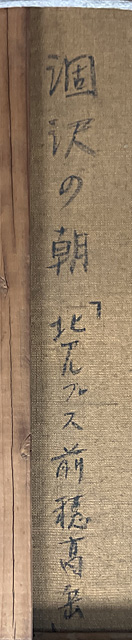 涸沢の朝
「北アルプス前穂高岳